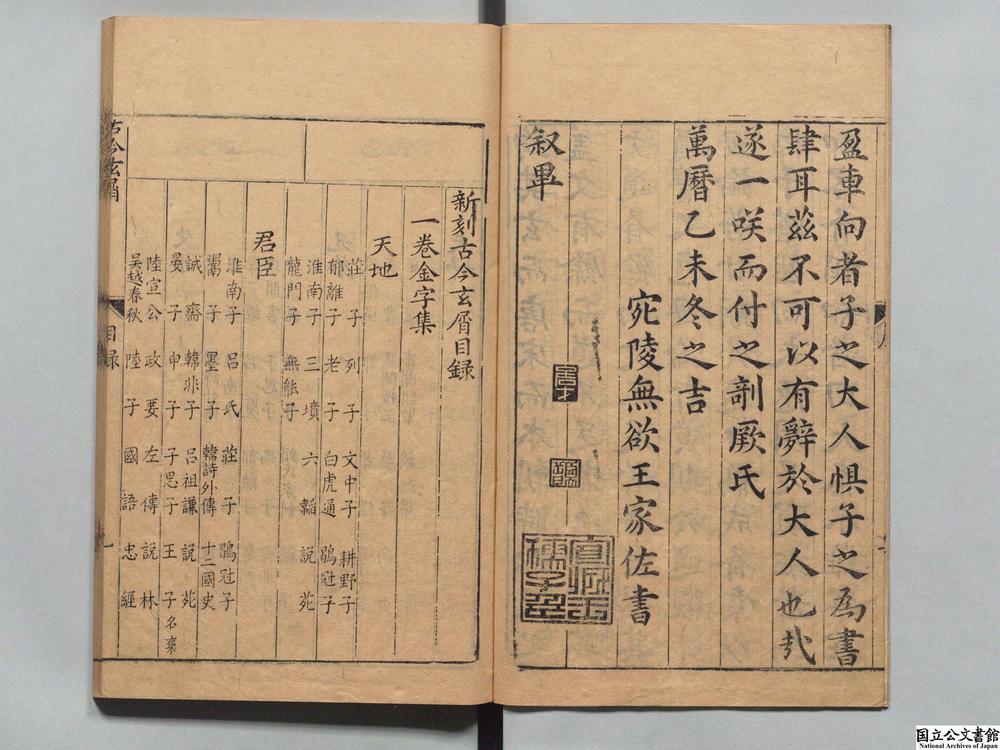 盈車向者子之大人惧子之爲書
肆耳茲不可以有辭於大人也哉
遂一咲而付之剞厥氏
萬曆乙未冬之吉
宛陵無欲王家佐書
叙畢
新刻古今玄屑目録
一卷金字集
天地
莊子 列子 文中子 耕野子
郁離子 老子 白虎通 鶡冠子
淮南子 三墳 六韜 說苑
龍門子 無能子
君臣
淮南子 呂氏 莊子 鶡冠子
鬻子 墨子 韓詩外傳 十二國史
誠齋 韓非子 呂祖謙 說苑
晏子 申子 子思子 王子名褒
陸宣公 政要 左傳 說林
吳越春秋 陸子 國語 忠經
古今玄屑
目録
一
国立公文書館
National Archives of Japan